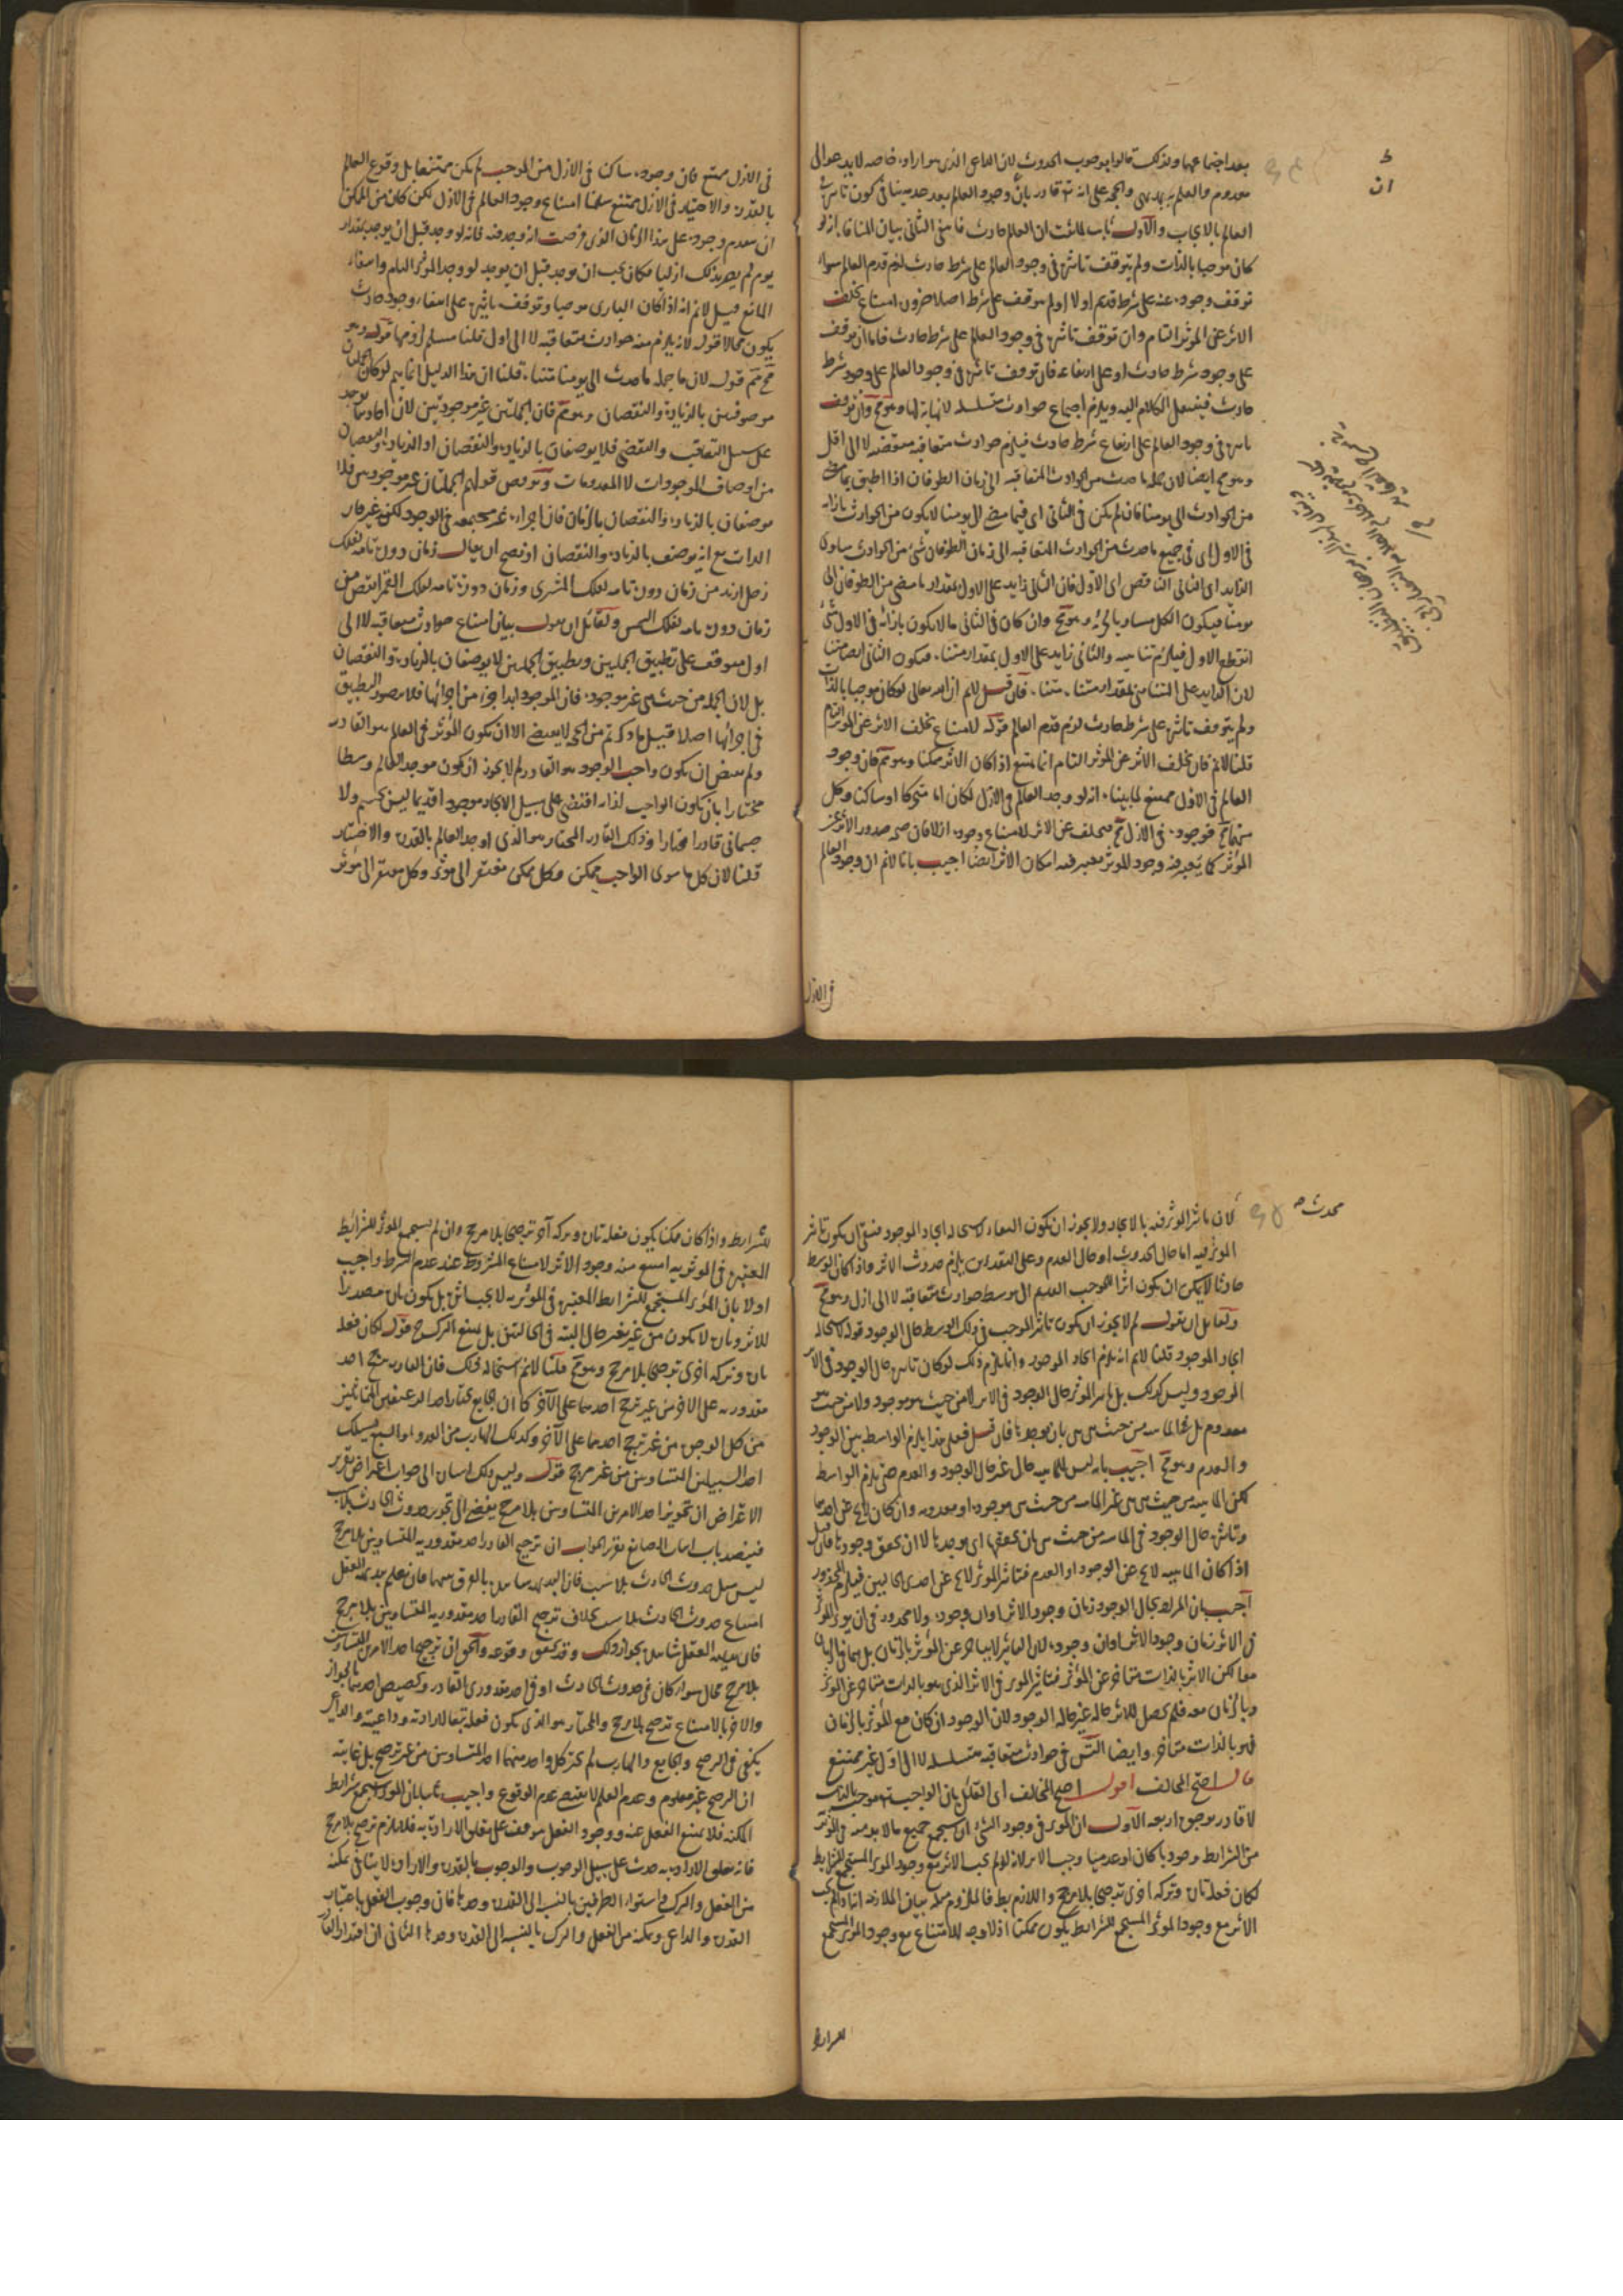 بعد اجتماعهما ولذلك قالوا بوجوب الحدوث لان الداعي الذي هو ارادة خاصة لا يدعو الا الى
معدوم والعلم به بديهي والحجة على انه تعالى قادر بان وجود العالم بعد عدمه ينافي كون تاثيره
العالم بالايجاب والاول ثابت لما ثبت ان العالم حادث فانتفى الثاني بيان المنافاة انه لو
كان موجبا بالذات ولم يتوقف تاثيره في وجود العالم على شرط حادث لزم قدم العالم سواء
توقف وجوده عنه على شرط قديم او لا اولم يتوقف على شرط اصلا ضرورة امتناع تخلف
الاثر عن المؤثر التام وان توقف تاثيره في وجود العالم على شرط حادث فاما ان يتوقف
على وجود شرط حادث او على ارتفاعه فان توقف تاثيره في وجود العالم على وجود شرط
حادث فينتقل الكلام اليه ويلزم اجتماع حوادث متسلسلة لا نهاية لها وهو مح وان توقف
تاثيره في وجود العالم على ارتفاع شرط حادث فيلزم حوادث متعاقبة منقضية لا الى اول
وهو مح ايضا لان جملة ما حدث من الحوادث المتعاقبة الى زمان الطوفان اذا اطبق بما
من الحوادث الى يومنا فان لم يكن في الثاني اي فيما مضى الى يومنا لا يكون من الحوادث بازائه
في الاول اي في جميع ما حدث من الحوادث المتعاقبة الى زمان الطوفان شيء من الحوادث ساوى
الزايد اي الثاني الناقص اي الاول فان الثاني زايد على الاول بمقدار ما مضى من الطوفان الى
يومنا فيكون الكل مساويا لجزئه وهو مح وان كان في الثاني ما لا يكون بازائه في الاول شيء
انقطع الاول فيلزم تناهيه والثاني زايد على الاول بمقدار متناه فيكون الثاني ايضا متناهيا
لان الزايد على المتناهي بمقدار متناه متناه فان قيل لانم ان الله تعالى لو كان موجبا بالذات
ولم يتوقف تاثيره على شرط حادث لزم قدم العالم قوله لامتناع تخلف الاثر عن المؤثر التام
قلنا لانم فان تخلف الاثر عن المؤثر التام انما يمتنع اذا كان الاثر ممكنا وهو مم فان وجود
العالم في الازل ممتنع لما بينا انه لو وجد العالم في الازل لكان اما متحركا او ساكنا وكل
منهما مح فوجوده في الازل مح فتخلف عن الاثر لامتناع وجوده ازلا فان صحة صدور الاثر عن
المؤثر كما يعتبر فيه وجود المؤثر يعتبر فيه امكان الاثر ايضا اجيب بانا لانم ان وجود العالم
في الازل
في الازل ممتنع فان وجوده ساكن في الازل من الموجب لم يكن ممتنعا بل وقوع العالم
بالقدرة والاختيار في الازل ممتنع سلمنا امتناع وجود العالم في الازل لكن كان من الممكن
ان يتقدم وجوده على هذا الزمان الذي فرضت انه وجد فيه فانه لو وجد قبل ان يوجد بمقدار
يوم لم يصر بذلك ازليا فكان يجب ان يوجد قبل ان يوجد لو وجد المؤثر التام وانتفاء
المانع قيل لانم انه اذا كان الباري موجبا وتوقف تاثيره على انتفاء وجود حادث
يكون محالا قوله لانه يلزم منه حوادث متعاقبة لا الى اول قلنا مسلم لزومها قوله وهو
مح مم قوله لان ما جملة ما حدث الى يومنا متناه قلنا ان هذا الدليل انما يتم لو كان الجملتان
موصوفتين بالزيادة والنقصان وهو مم فان الجملتين غير موجودتين لان احادهما توجد
على سبيل التعاقب والتقضي فلا يوصفان بالزيادة والنقصان اذ الزيادة والنقصان
من اوصاف الموجودات لا المعدومات ونوقض قولهم الجملتان غير موجودتين فلا
يوصفان بالزيادة والنقصان بالزمان فان اجزاءه غير مجتمعة في الوجود لكن غير قار
الذات مع انه يوصف بالزيادة والنقصان اذ يصح ان يقال زمان دورة تامة لفلك
زحل ازيد من زمان دورة تامة لفلك المشتري وزمان دورة تامة لفلك القمر انقص من
زمان دورة تامة لفلك الشمس ولقائل ان يقول بيان امتناع حوادث متعاقبة لا الى
اول يتوقف على تطبيق الجملتين وتطبيق الجملتين لا يوصفان بالزيادة والنقصان
بل لان الجملة من حيث هي غير موجودة فان الموجود ابدا جزء من اجزائها فلا يتصور التطبيق
في اجزائها اصلا قيل ما ذكرتم من الحجة لا يقتضي الا ان يكون المؤثر في العالم هو القادر
ولم يقتض ان يكون واجب الوجود هو القادر لم لا يجوز ان يكون موجد العالم وسطا
مختارا بان يكون الواجب لذاته اقتضى على سبيل الايجاد موجودا قديما ليس بجسم ولا
جسماني قادرا مختارا وذلك القادر المختار هو الذي اوجد العالم بالقدرة والاختيار
قلنا لان كل ما سوى الواجب ممكن وكل ممكن مفتقر الى مؤثر وكل مفتقر الى مؤثر
محدث
لان تاثير المؤثر فيه بالايجاد ولا يجوز ان يكون حال البقاء لاستحالة ايجاد الموجود فتعين ان يكون تاثير
المؤثر فيه اما حال الحدوث او حال العدم وعلى التقديرين يلزم حدوث الاثر واذا كان الوسط
حادثا لا يمكن ان يكون اثرا للموجب القديم الا بتوسط حوادث متعاقبة لا الى ازل وهو مح
ولقائل ان يقول لم لا يجوز ان يكون تاثير الموجب في ذلك الوسط حال الوجود قوله لاستحالة
ايجاد الموجود قلنا لانم انه يلزم ايجاد الموجود وانما يلزم ذلك لو كان تاثيره حال الوجود في الاثر
الموجود وليس كذلك بل تاثير المؤثر حال الوجود في الاثر لا من حيث هو موجود ولا من حيث هو
معدوم بل في الماهية من حيث هي هي بان يوجدها فان قيل فعلى هذا يلزم الواسطة بين الوجود
والعدم وهو مح اجيب بانه ليس للماهية حال غير حال الوجود والعدم حتى يلزم الواسطة
لكن الماهية من حيث هي هي غير الماهية من حيث هي موجودة او معدومة وان كان لا يخ عن احدهما
وتاثيره حال الوجود في الماهية من حيث هي بان يحققها اي يوجدها لا ان يحقق وجودها فان قيل
اذا كان الماهية لا يخ عن الوجود او العدم فتاثير المؤثر لا يخ عن احدى الحالين فيلزم المحذور
اجيب بان المراد بحال الوجود زمان وجود الاثر اوان وجوده ولا محذور في ان يؤثر المؤثر
في الاثر زمان وجود الاثر اوان وجوده لان التاثير لا يتاخر عن المؤثر بالزمان بل هما في الزمان
معا لكن الاثر بالذات متاخر عن المؤثر فتاثير المؤثر في الاثر الذي هو بالذات متاخر عن المؤثر
وبالزمان معه فلم يحصل للاثر حالة غير حالة الوجود لان الوجود ان كان مع المؤثر بالزمان
فهو بالذات متاخر وايضا التس في حوادث متعاقبة متسلسلة لا الى اول غير ممتنع
قال احتج المخالف اقول احتج المخالف اي القائل بان الواجب تعالى موجب بالذات
لا قادر بوجوه اربعة الاول ان المؤثر في وجود الشيء ان استجمع جميع ما لا بد منه في المؤثرية
من الشرايط وجوديا كان او عدميا وجب الاثر لانه لو لم يجب الاثر مع وجود المؤثر المستجمع للشرايط
لكان فعله تارة وتركه اخرى ترجيحا بلا مرجح واللازم بط فالملزوم مثله بيان الملازمة انه اذا لم يجب
الاثر مع وجود المؤثر المستجمع للشرايط يكون ممكنا اذ لا وجه للامتناع مع وجود المؤثر المستجمع
للشرايط
للشرايط واذا كان ممكنا يكون فعله تارة وتركه اخرى ترجيحا بلا مرجح وان لم يستجمع المؤثر الشرايط
المعتبرة في المؤثرية امتنع منه وجود الاثر لامتناع المشروط عند عدم الشرط واجيب
اولا بان المؤثر المستجمع للشرايط المعتبرة في المؤثرية لا يجب اثره بل يكون تارة مصدرا
للاثر وتارة لا يكون من غير تغير حال البتة في الحالتين بل يمنع الترجيح قوله لكان فعله
تارة وتركه اخرى ترجيحا بلا مرجح وهو مح قلنا لانم استحالة ذلك فان القادر يرجح احد
مقدوريه على الاخر من غير ترجح احدهما على الآخر كما ان الجايع يختار احد الرغيفين المتماثلين
من كل الوجوه من غير ترجح احدهما على الآخر وكذلك الهارب من العدو او السبع يسلك
احد السبيلين المتساويين من غير مرجح قوله وليس ذلك اشارة الى جواب اعتراض تقرير
الاعتراض ان تجويز احد الامرين المتساويين بلا مرجح يفضي الى تجويز حدوث الحادث بلا سبب
فينسد باب اثبات الصانع تقرير الجواب ان ترجيح القادر احد مقدوريه المتساويين بلا مرجح
ليس مثل حدوث الحادث بلا سبب فان البديهة شاهدة بالفرق بينهما فان نعلم ببديهة العقل
امتناع حدوث الحادث بلا سبب بخلاف ترجيح القادر احد مقدوريه المتساويين بلا مرجح
فان بديهة العقل شاهدة بجواز ذلك وقد تحقق وقوعه والحق ان ترجيح احد الامرين المتساويين
بلا مرجح محال سواء كان في حدوث الحادث او في احد مقدوري القادر وتخصيص احدهما بالجواز
والاخر بالامتناع ترجيح بلا مرجح والمختار هو الذي يكون فعله تبعا لارادته وداعيته والداعي
يكفي في الترجيح والجايع والهارب لم يختر كل واحد منهما احد المتساويين من غير ترجيح بل غايته
ان المرجح غير معلوم وعدم العلم لا يقتضي عدم الوقوع واجيب ثانيا بان المؤثر استجمع شرايط
المكنة فلا يمتنع الفعل عنه ووجود الفعل متوقف على تعلق الارادة به فلا يلزم ترجيح بلا مرجح
فانه تعلق الارادة به حدث على سبيل الوجوب والوجوب بالقدرة والارادة لا ينافي تمكنه
من الفعل والترك واستواء الطرفين بالنسبة الى القدرة وحدها فان وجوب الفعل باعتبار
القدرة والداعي وتمكنه من الفعل والترك بالنسبة الى القدرة وحدها الثاني ان اقتدار القادر